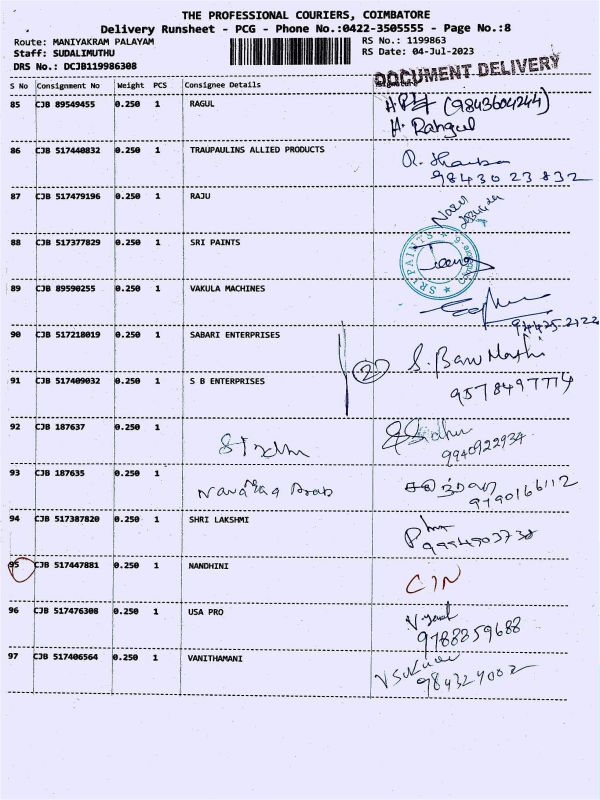 THE PROFESSIONAL COURIERS, COIMBATORE
Delivery Runsheet - PCG - Phone No.:0422-3505555 - Page No.:8
Route: MANIYAKRAM PALAYAM
RS No.: 1199863
Staff: SUDALIMUTHU
RS Date: 04-Jul-2023
DRS No.: DCJB119986308
DOCUMENT DELIVERY
S No Consignment No Weight PCS Consignee Details Signature
85 CJB 89549455 0.250 1 RAGUL (9843604244)
H. Rahgul
86 CJB 517440832 0.250 1 TRAUPAULINS ALLIED PRODUCTS
98430 23832
87 CJB 517479196 0.250 1 RAJU
88 CJB 517377829 0.250 1 SRI PAINTS
SRI PAINTS
89 CJB 89590255 0.250 1 VAKULA MACHINES
94425 2122
90 CJB 517218019 0.250 1 SABARI ENTERPRISES
2 S. Banu Mathi
91 CJB 517409032 0.250 1 S B ENTERPRISES
9578497774
92 CJB 187637 0.250 1 Sridhu
9940922934
93 CJB 187635 0.250 1
9790166112
94 CJB 517387820 0.250 1 SHRI LAKSHMI
9994903738
95 CJB 517447881 0.250 1 NANDHINI
CIN
96 CJB 517476308 0.250 1 USA PRO
9788359688
97 CJB 517406564 0.250 1 VANITHAMANI
984327002